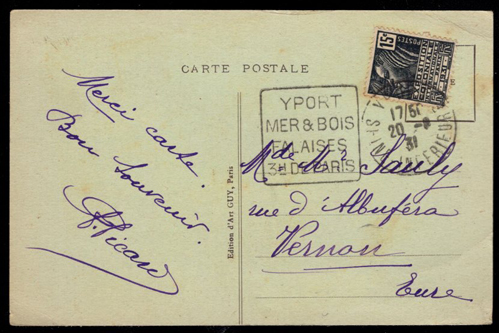 CARTE POSTALE
Merci carte.
Bon souvenir.
Picard
Edition d'Art GUY, Paris
15c
POSTES
YPORT
MER & BOIS
FALAISES
3H DE PARIS
17 50
20 -8
31
SEINE INFERIEURE
Mr Sauly
rue d'Albufera
Vernon
Eure